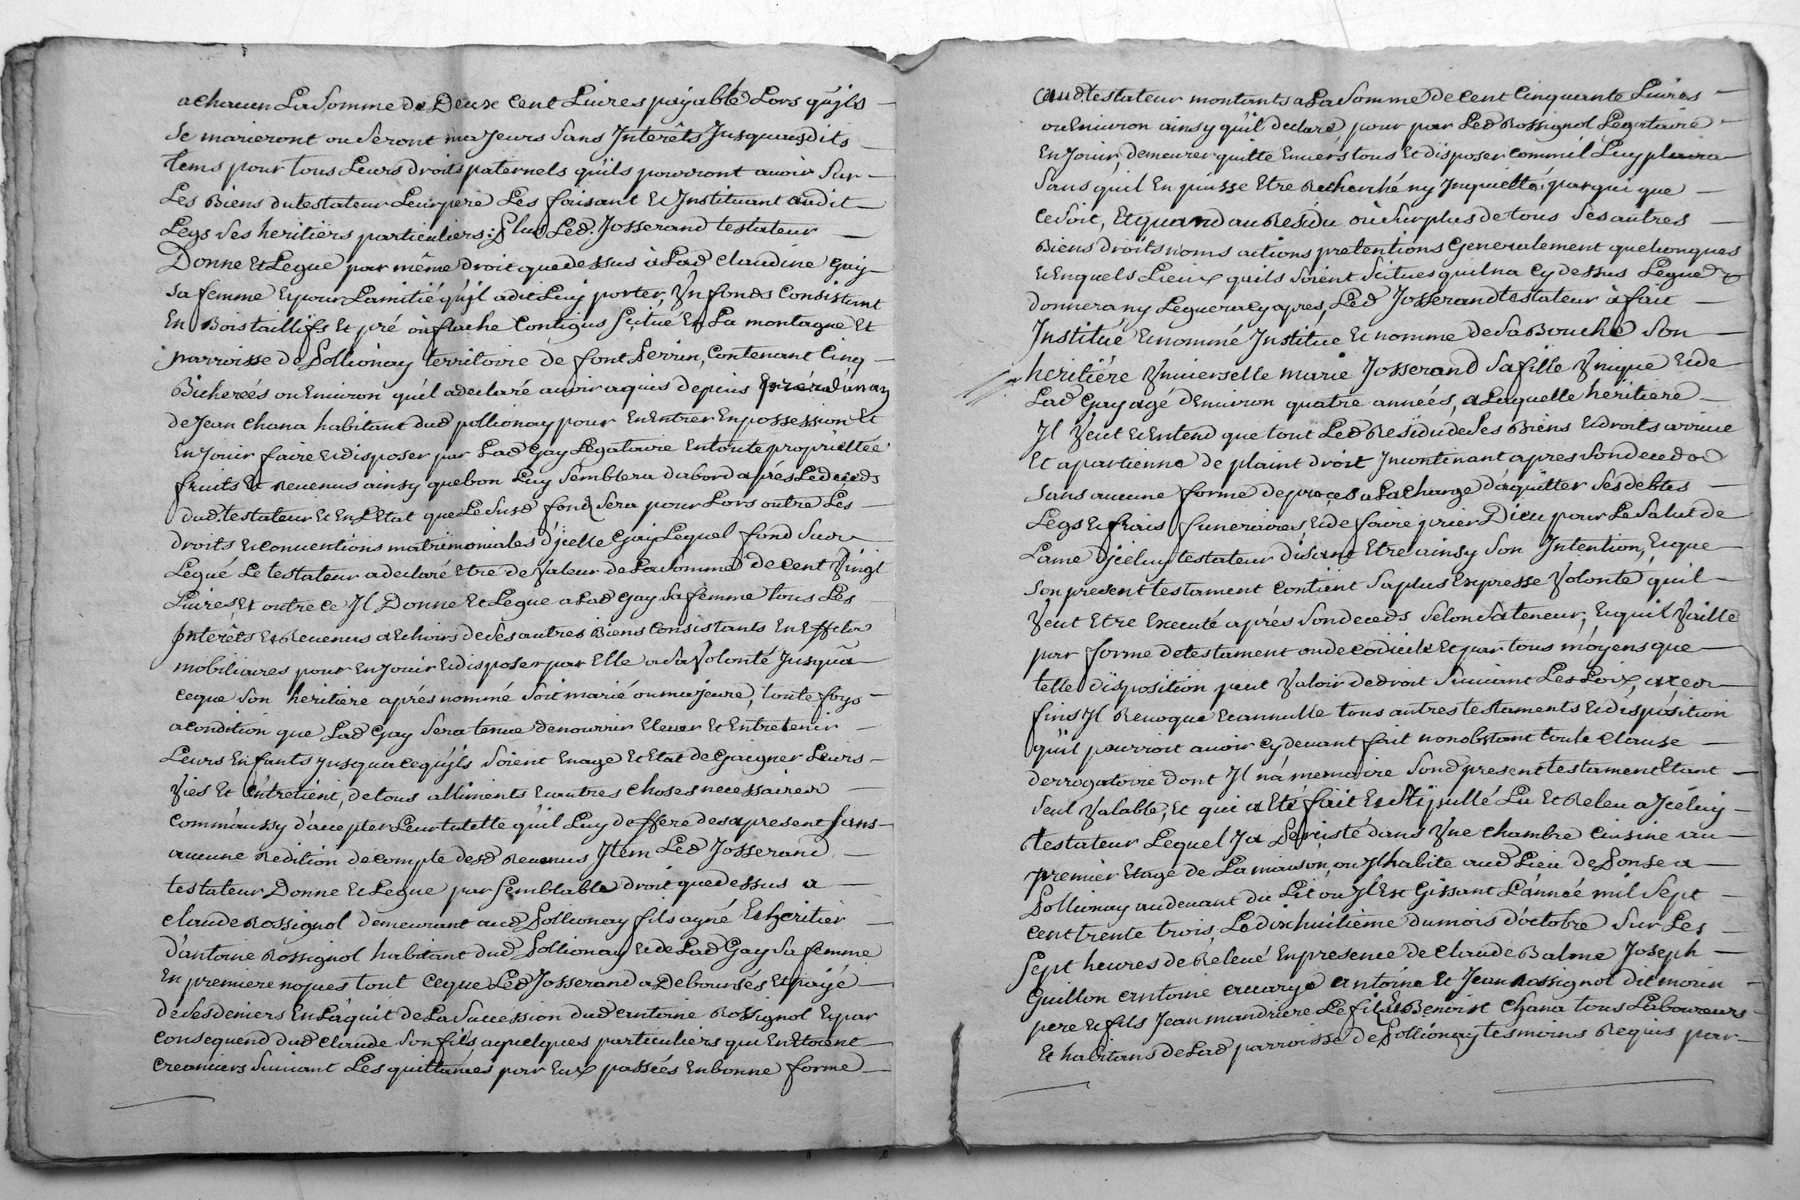 a chacun La Somme de Deux Cent Livres payable Lors quils
Se marieront ou Seront majeurs Sans Interêts Jusquausdits
tems pour tous Leurs droits paternels quils pourront avoir Sur
Les Biens du testateur Leur pere Les faisant Et Instituant audit
Legs Ses heritiers particuliers; Plus Led. Josserand testateur
Donne Et Legue par même droit que dessus à Lad Claudine Gay
Sa femme Et pour Lamitié quil a dit Luy porter, Un fonds Consistant
En Bois taillifs Et pré ou fluche Contigus Scitué En La montagne Et
parroisse de Pollionay territoire de font Perrin, Contenant Cinq
Bicherées ou Environ quil a declaré avoir aquis depuis
de Jean Chana habitant dud pollionay pour En Entrer En possession Et
En Jouir faire Et disposer par Lad Gay Legataire En toute proprietteé
fruits Et Revenus ainsy que bon Luy Semblera d'abord aprés Le deceds
dud. testateur Et En L'Etat que Le Susd fond Sera pour Lors outre Les
droits Et Conventions matrimoniales d'jcelle Gay Lequel fond
Legué Le testateur a declaré Etre de Valeur de La Somme de Cent Vingt
Livres, Et outre ce Jl Donne Et Legue a Lad Gay Sa femme tous Les
Interêts Et Revenus a Echoirs de Ses autres Biens Consistants En Effets
mobiliaires pour En Jouir Et disposer par Elle a Sa Volonté Jusqu'a
ceque Son heritiere aprés nommé Soit marié ou majeure, toute foys
a Condition que Lad Gay Sera tenue de nourrir Elever Et Entretenir
Leurs Enfants Jusqua ce quijls Soient En age Et Etat de Gaigner Leurs
Vies Et Entretient, de tous alliments Et autres Choses necessaires
Comm'aussy d'accepter Leur tutelle qu'il Luy deffere des a present Sans
aucune Redition de Compte desd Revenus Jtem Led Josserand
testateur Donne Et Legue par Semblable droit que dessus a
Claude Rossignol demeurant aud Pollionay fils ayné Et heritier
D'antoine Rossignol habitant dud Pollionay Et de Lad Gay Sa femme
En premiere nopces tout Ceque Led Josserand a Deboursés Et payé
de Ses deniers En L'aquit de La Succession dud antoine Rossignol Et par
Consequend dud Claude Son fils a quelques particuliers qui En Etoient
Creanciers Suivant Les quittances par Eux passées En bonne forme
Aud testateur montants a La Somme De Cent Cinquante Livres
ou Environ ainsy quil declare, pour par Led Rossignol Legataire
En Jouir, demeurer quitte Envers tous Et disposer Comm'il Luy plaira
Sans quil En puisse Etre Recherché ny Jnquietté par qui que
Ce Soit, Et quand au Residu ou Surplus de tous Ses autres
Biens droits noms actions pretentions Generalement quelconques
Et En quels Lieux quils Soient Scitues quil na Cy dessus Legué
donnera ny Leguera Cy apres, Led Josserand testateur à fait
Institué Et nommé Institue Et nomme de Sa Bouche Son
heritiére Universelle marie Josserand Sa fille Unique Et de
Lad Gay agé d'Environ quatre années, a Laquelle héritiere
Jl Veut Et Entend que tout Led Residu de Ses Biens Et droits arrive
Et apartienne de plaint droit Jncontinant apres Son deceds
Sans aucune forme de procés a La Charge d'aquitter Ses debtes
Legs Et frais funeraires Et de faire prier Dieu pour Le Salut de
L'ame D'jceluy testateur disant Etre ainsy Son Intention, Et que
Son present testament Contient Sa plus Expresse Volonté quil
Veut Etre Executé aprés Son deceds Selon Sa teneur, Et quil Vaille
par forme de testament ou de Codicile Et par tous moyens que
telle disposition peut Valoir de droit Suivant Les Loix, a
fins Jl Revoque Et annulle tous autres testaments Et disposition
qu'il pourroit avoir Cy devant fait nonobstant toute Clause
derrogatoire dont Jl n'a memoire Sond present testament Etant
Seul Valable, Et qui a Eté fait Et Stipullé Lu Et Releu a Jcéluy
testateur Lequel Ja persisté dans Une Chambre Cuisine au
premier Etage de La maison, ou Jl habite aud Lieu de Ponse a
Pollionay au devant du Lit ou Jl Est Gissant L'année mil Sept
Cent trente trois, Le dix huitiéme du mois d'octobre Sur Les
Sept heures de Relevé En presence de Claude Balme Joseph
Guillon antoine antoine Et Jean Rossignol dit morin
pere Et fils Jean mandriere Le fils Et Benoist Chana tous Laboureurs
Et habitans de Lad parroisse de Pollionay tesmoins Requis par